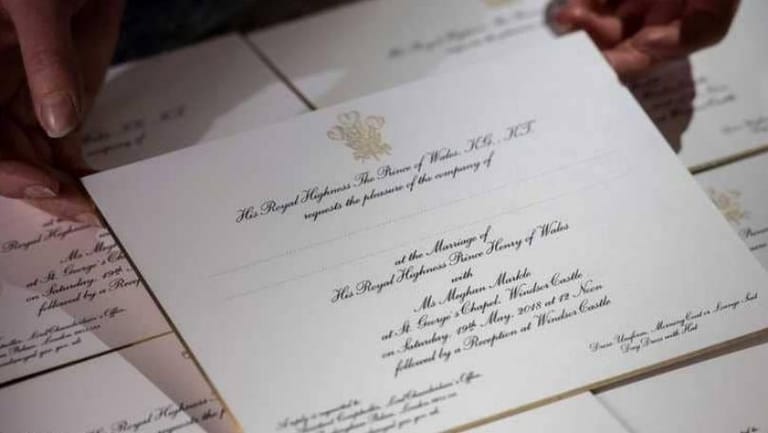 His Royal Highness The Prince of Wales, K.G., K.T.
requests the pleasure of the company of
at the Marriage of
His Royal Highness Prince Henry of Wales
with
Ms Meghan Markle
at St. George's Chapel, Windsor Castle
on Saturday, 19th May, 2018 at 12 Noon
followed by a Reception at Windsor Castle
Dress: Uniform, Morning Coat or Lounge Suit
Day Dress with Hat
A reply is requested to:
Lord Chamberlain's Office,
Buckingham Palace, London
Ms Megh
at St. George's Chap
on Saturday, 19th
followed by a Rec
Lord Chamberlain's Office
His Royal High
requests the